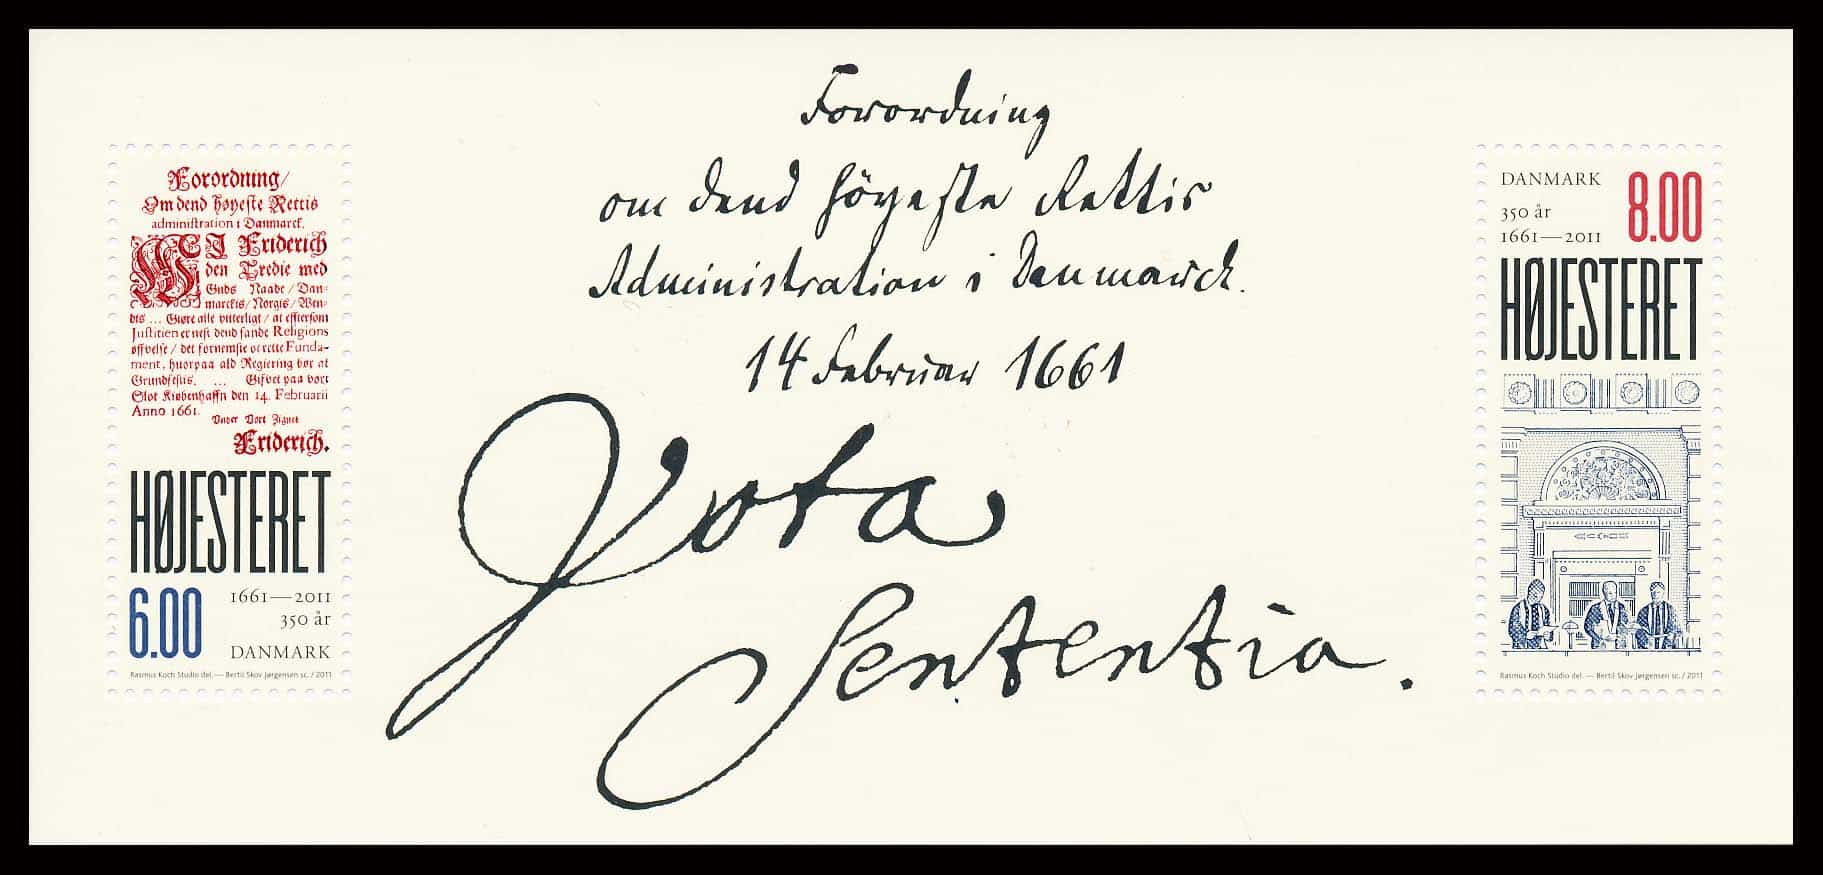 Forordning/
Om dend høyeste Rettis
administration i Danmarck.
WI Friderich
den Tredie med
Guds Naade/Dan-
marckis/Norgis/Wen-
dis ... Giøre alle vitterligt/at efftersom
Justitien er nest dend sande Religions
øffvelse/det fornemste oc rette Funda-
ment, huorpaa ald Regiering bør at
Grundfestis. ... Giffvet paa vort
Slot Kiøbenhaffn den 14. Februarii
Anno 1661.
Under Vort Zignet
Friderich.
HØJESTERET
6.00
1661—2011
350 år
DANMARK
Rasmus Koch Studio del. — Bertil Skov Jørgensen sc. / 2011
Forordning
om dend höyeste Rettis
Administration i Danmarck.
14 Februar 1661
Vota
Sententia.
DANMARK
8.00
350 år
1661—2011
HØJESTERET
Rasmus Koch Studio del. — Bertil Skov Jørgensen sc. / 2011